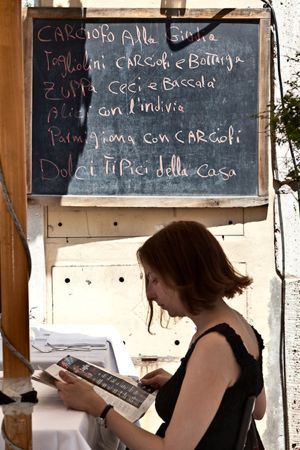 CARCIOFO Alla Giulia
Tagliolini CARCIOFI e Bottarga
ZUPPA CECI e Baccalà
Alici con l'indivia
Parmigiana con CARCIOFI
Dolci TIPICI della casa